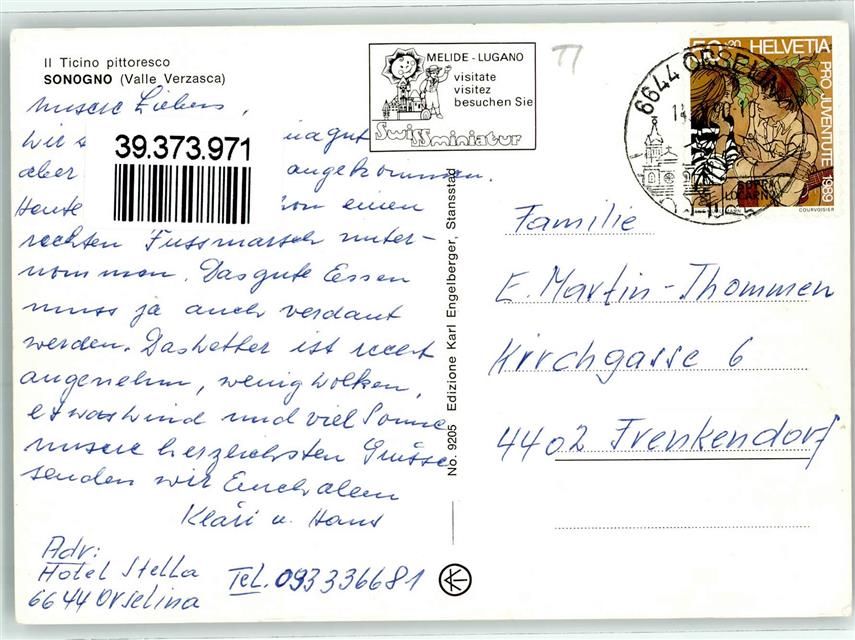 Il Ticino pittoresco
SONOGNO (Valle Verzasca)
unsere Lieben,
Wir
39.373.971
gut
aber
angekommen.
Heute
einen
rechten Fussmarsch unter-
nommen. Das gute Essen
muss ja auch verdaut
werden. Das Wetter ist recht
angenehm, wenig Wolken,
etwas Wind und viel Sonne
unsere herzlichsten Grüsse
senden wir Euch allen
Kläri u. Hans
Adr:
Hotel Stella
Tel. 093 336681
6644 Orselina
No. 9205 Edizione Karl Engelberger, Stansstad
MELIDE - LUGANO
visitate
visitez
besuchen Sie
Swissminiatur
6644 ORSELINA
SOPRA
LOCARNO
50+20 HELVETIA
PRO JUVENTUTE 1989
COURVOISIER
Familie
E. Martin-Thommen
Kirchgasse 6
4402 Frenkendorf